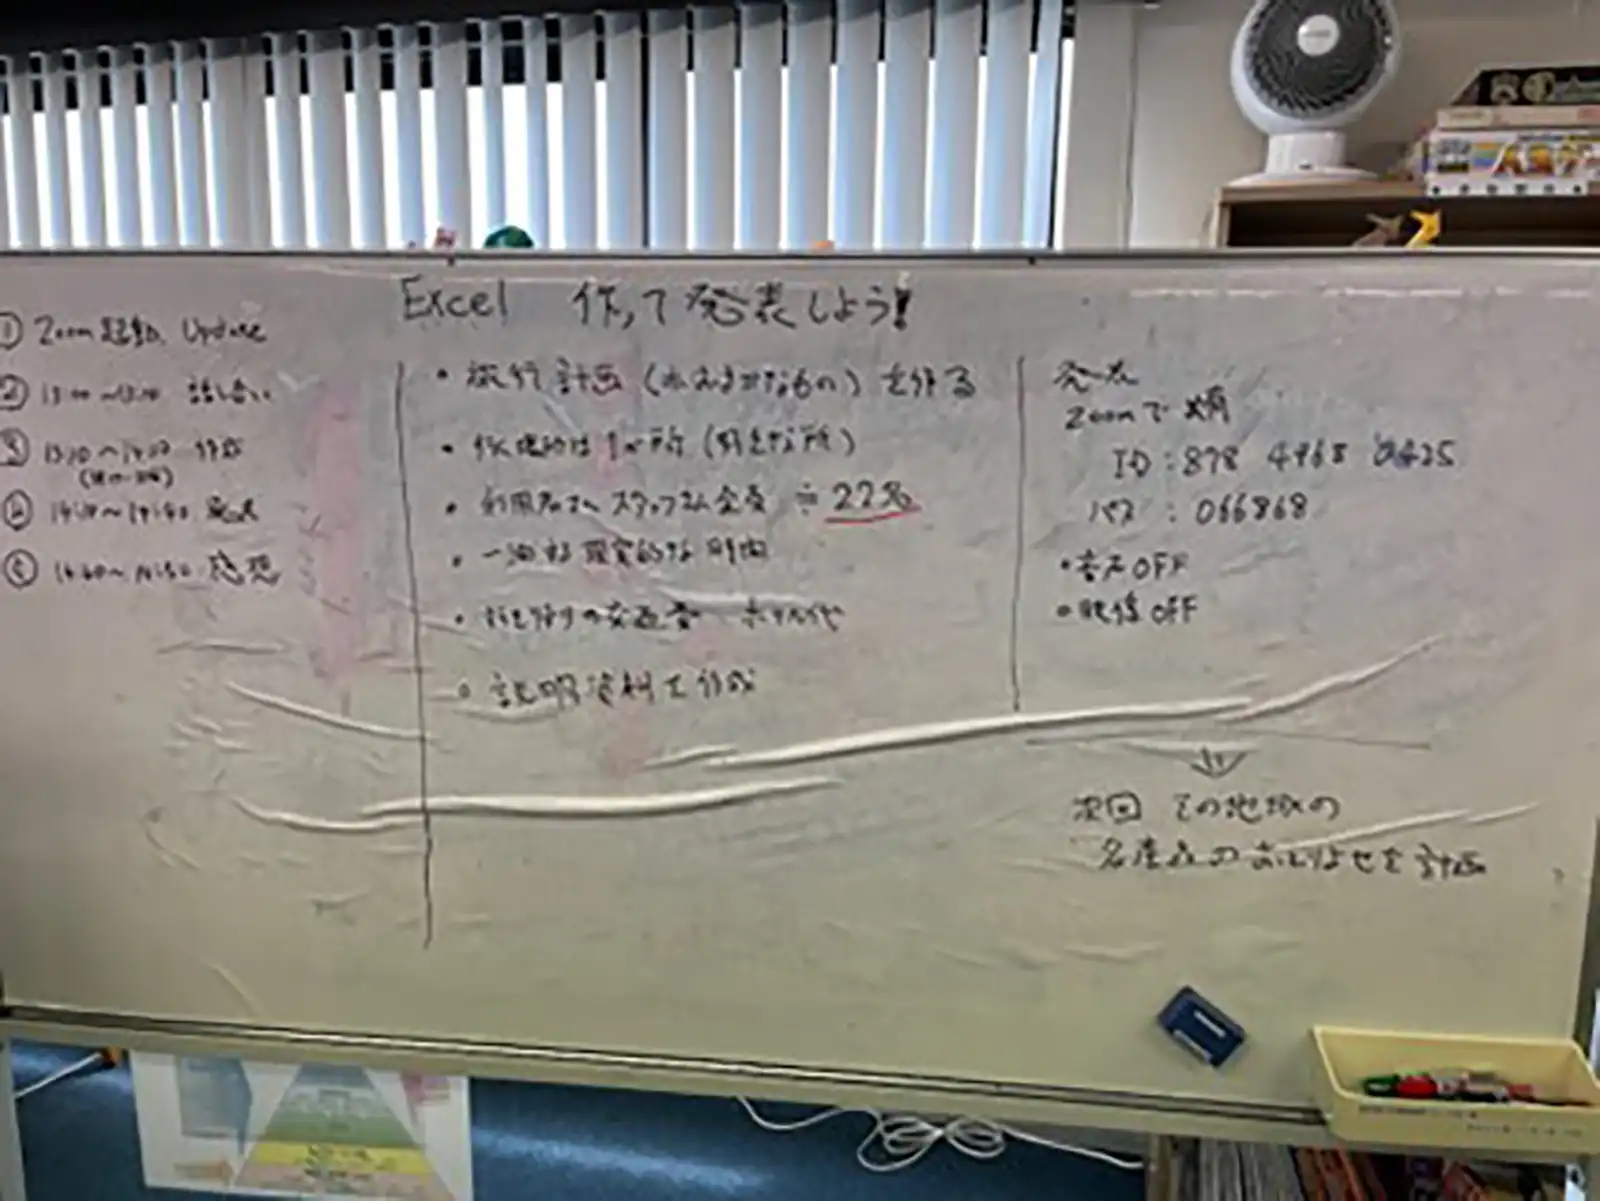 Excel 作って発表しよう!
① Zoom起動、Update
② 13:00~13:10 話し合い
③ 13:10~14:10 作成
④ 14:10~14:40 発表
⑤ 14:40~14:50 感想
・旅行計画(おおまかなもの)を作る
・行き先は1か所(好きな所)
・利用者さん スタッフさん全員 ※22名
・一泊 現実的な時間
・行き帰りの交通費 ホテル代
・説明資料を作成
発表
Zoomで共有
ID:878 4968 0425
パス:066868
・音声OFF
・映像OFF
次回 その地域の
名産品のおとりよせを計画